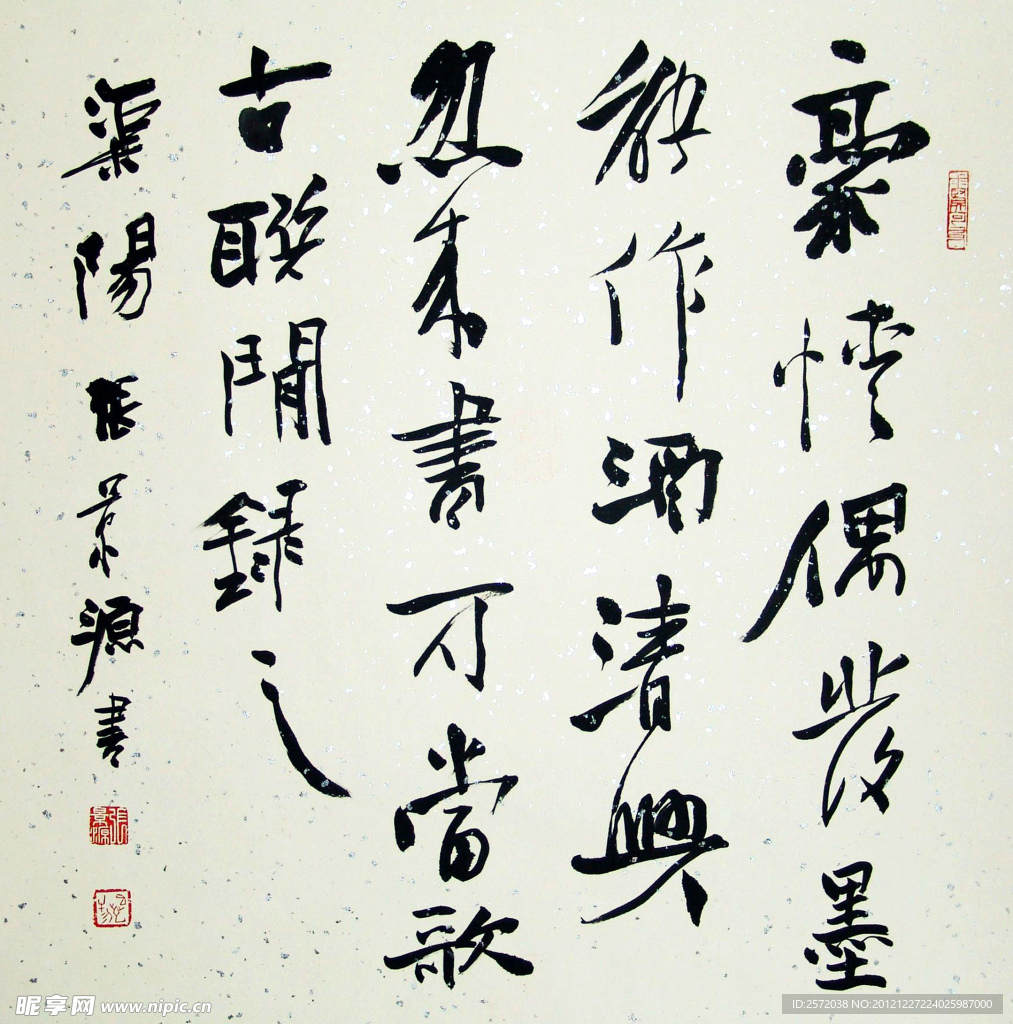 豪情偶發墨
能作酒清興
忽來書可當歌
古聯閒錄之
渠陽張景源書
昵享网 www.nipic.cn
ID:2572038 NO:20121227224025987000